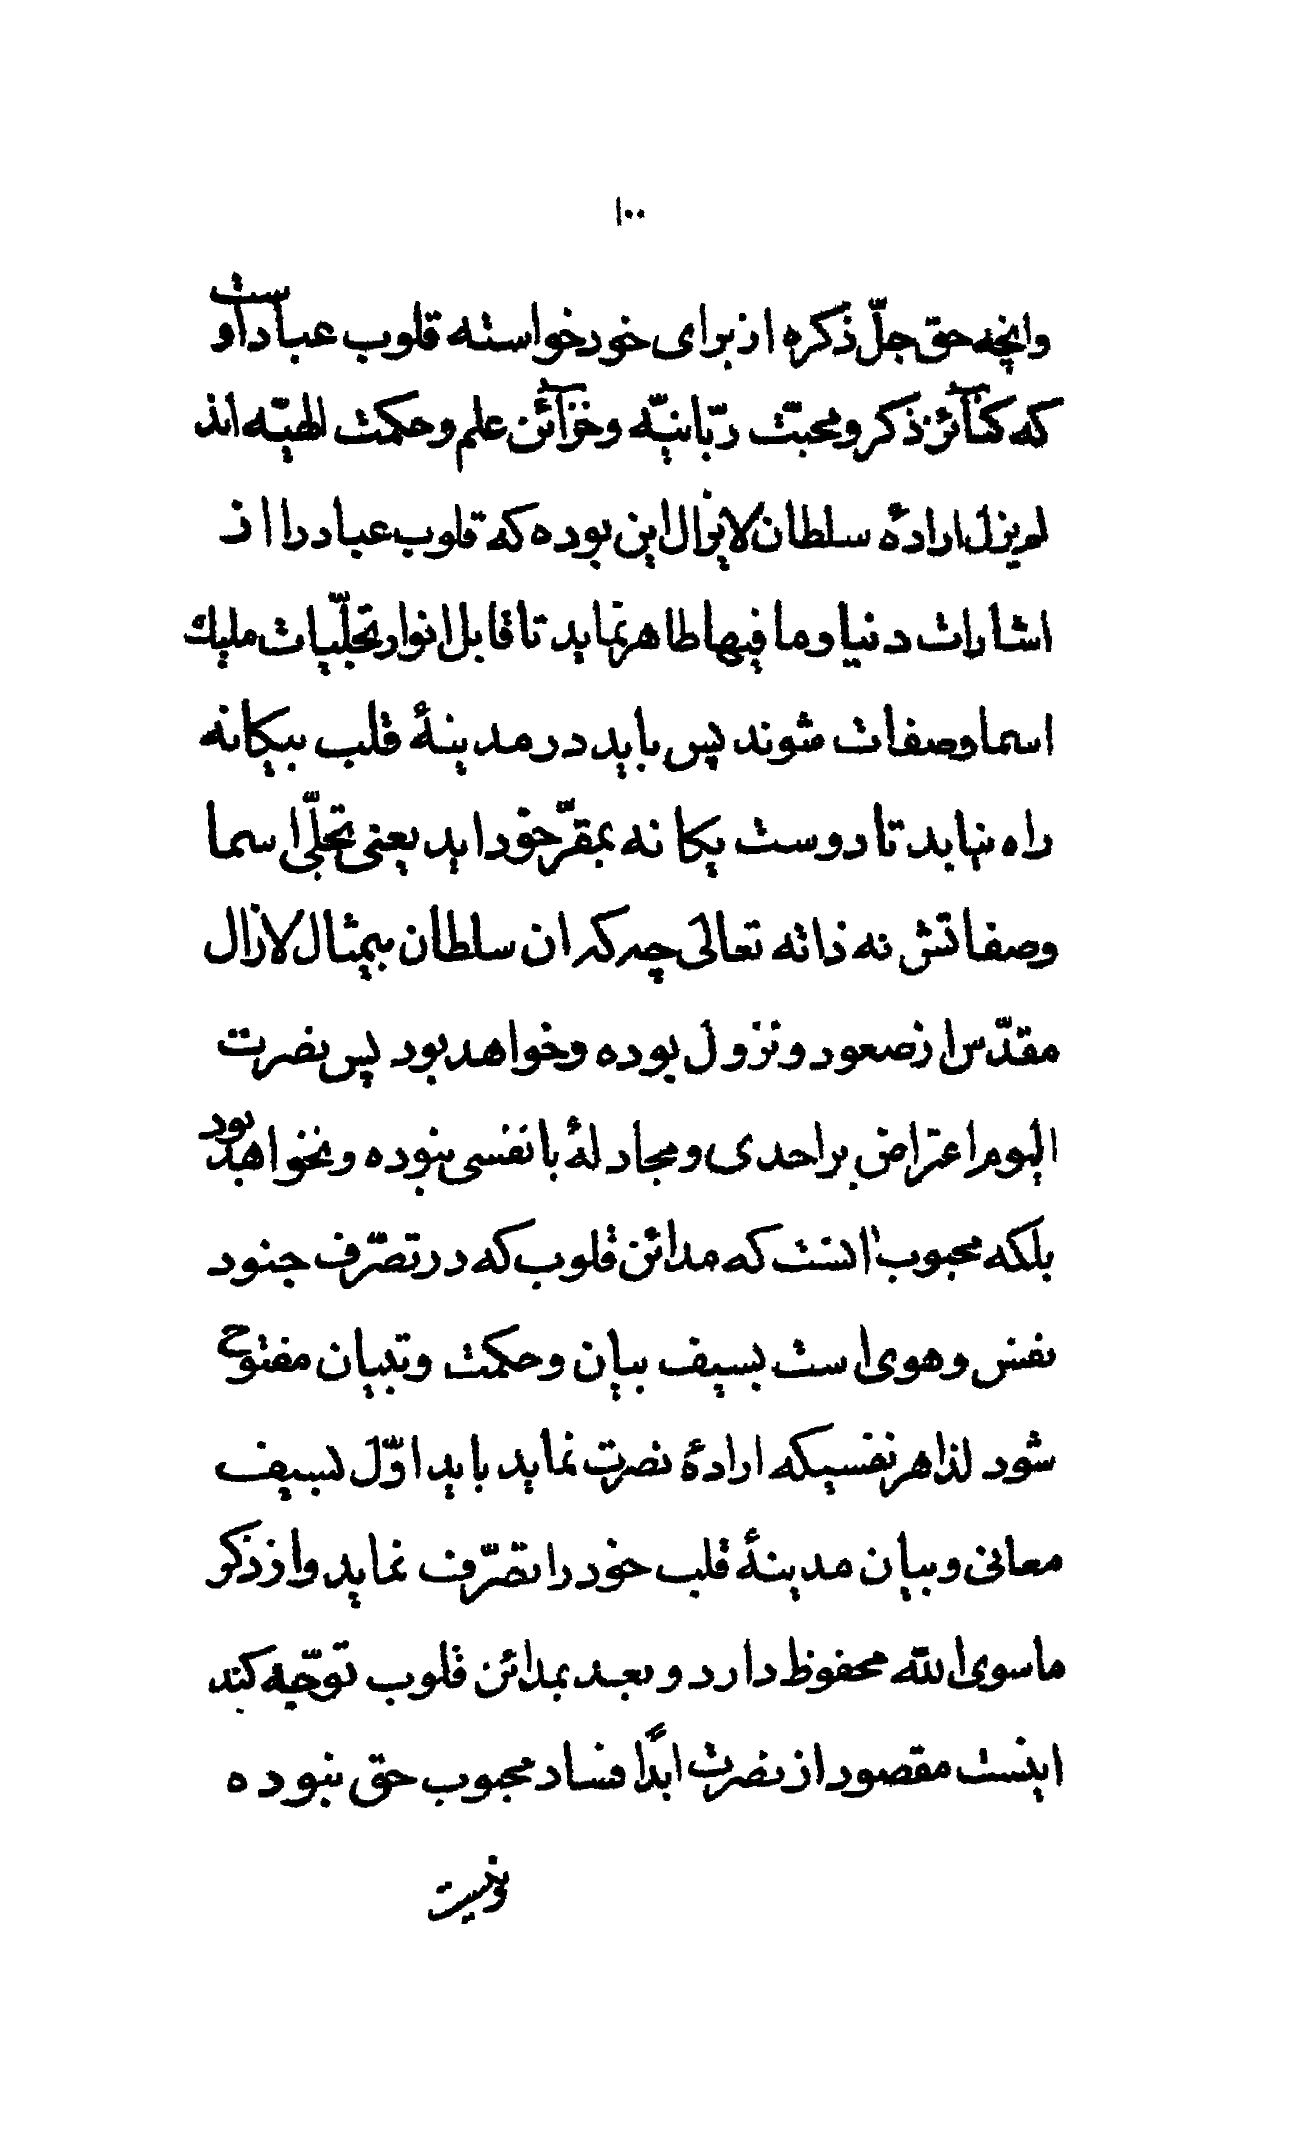 ١٠٠
وانچه حق جلّ ذكره از براى خود خواسته قلوب عباد اوست
كه كنآئز ذكر و محبّت ربّانيّه و خزآئن علم و حكمت الهيّه اند
لم يزل ارادهٔ سلطان لايزال اين بوده كه قلوب عباد را از
اشارات دنيا و ما فيها طاهر نمايد تا قابل انوار تجلّيات مليك
اسما و صفات شوند پس بايد در مدينهٔ قلب بيكانه
راه نيابد تا دوست يكانه بمقرّ خود ايد يعنى تجلّى اسما
و صفاتش نه ذاته تعالى چه كه ان سلطان بيمثال لازال
مقدّس از صعود و نزول بوده و خواهد بود پس نصرت
اليوم اعتراض بر احدى و مجادلهٔ با نفسى نبوده و نخواهد بود
بلكه محبوب انست كه مدائن قلوب كه در تصرّف جنود
نفس و هوى است بسيف بيان و حكمت و تبيان مفتوح
شود لذا هر نفسيكه ارادهٔ نصرت نمايد بايد اوّل بسيف
معانى و بيان مدينهٔ قلب خود را تصرّف نمايد و از ذكر
ما سوى الله محفوظ دارد و بعد بمدائن قلوب توجّه كند
اينست مقصود از نصرت ابدًا فساد محبوب حق نبوده
و نيست